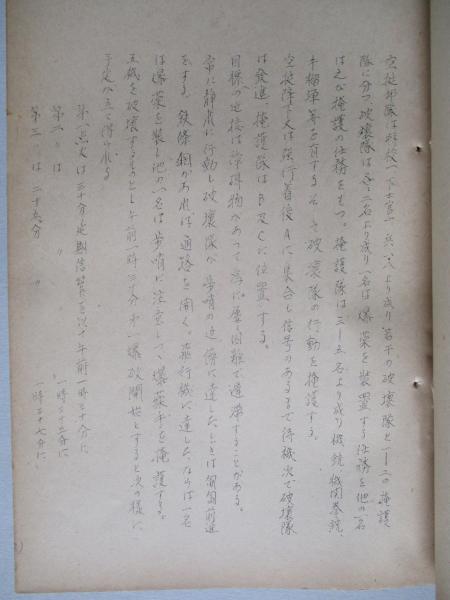 空挺部隊は将校一、下士官一、兵、八より成り若干の破壊隊と一ー二の掩護
隊に分つ、破壊隊は各〻二名より成り一名は爆薬を装置する任務を他の一名
は之が掩護の任務をもつ。掩護隊は三ー五名より成り機銃、機関拳銃、
手榴弾等を有する そして破壊隊の行動を掩護する。
空挺降下又は強行着後Aに集合し信号のあるまで待機次で破壊隊
は発進、掩護隊はB及Cに位置する。
目標への近接は障碍物があって淳に屡〻困難で遭遇することがある。
常に静粛に行動し破壊隊が歩哨の近傍に達したときは匍匐前進
をする。鉄条網があれば通路を開く。飛行機に達したならば一名
は爆薬を装し他の一名は歩哨に注意しつつ爆薬手を掩護する。
五機を破壊するものとし午前一時三十分 爆破開始とすると次の様に
予定が立て得られる
第一点火は三十分延期信管を以つ午前一時三十分に
第二 〃 は 〃 一時三十二分に
第三 〃 は二十五分 一時三十七分に